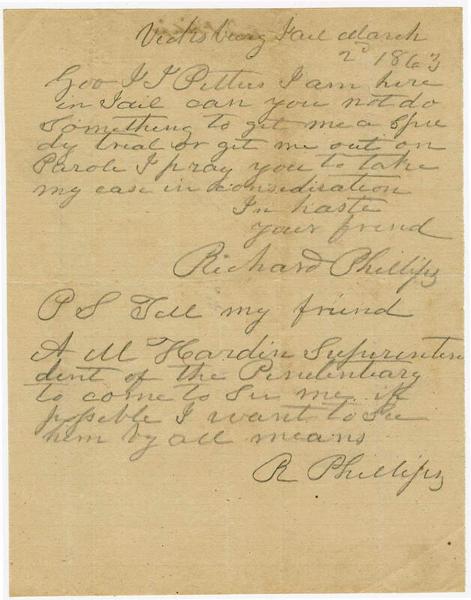 Vicksburg Jail March
2d 1863
Gov J J Pettus I am here
in Jail can you not do
Something to get me a spee
dy trial or get me out on
Parole I pray you to take
my case in considiration
In haste
your friend
Richard Phillips
P S Tell my friend
A M Hardin Superinten
dent of the Penetentiary
to come to See me if
possible I want to See
him by all means
R Phillips